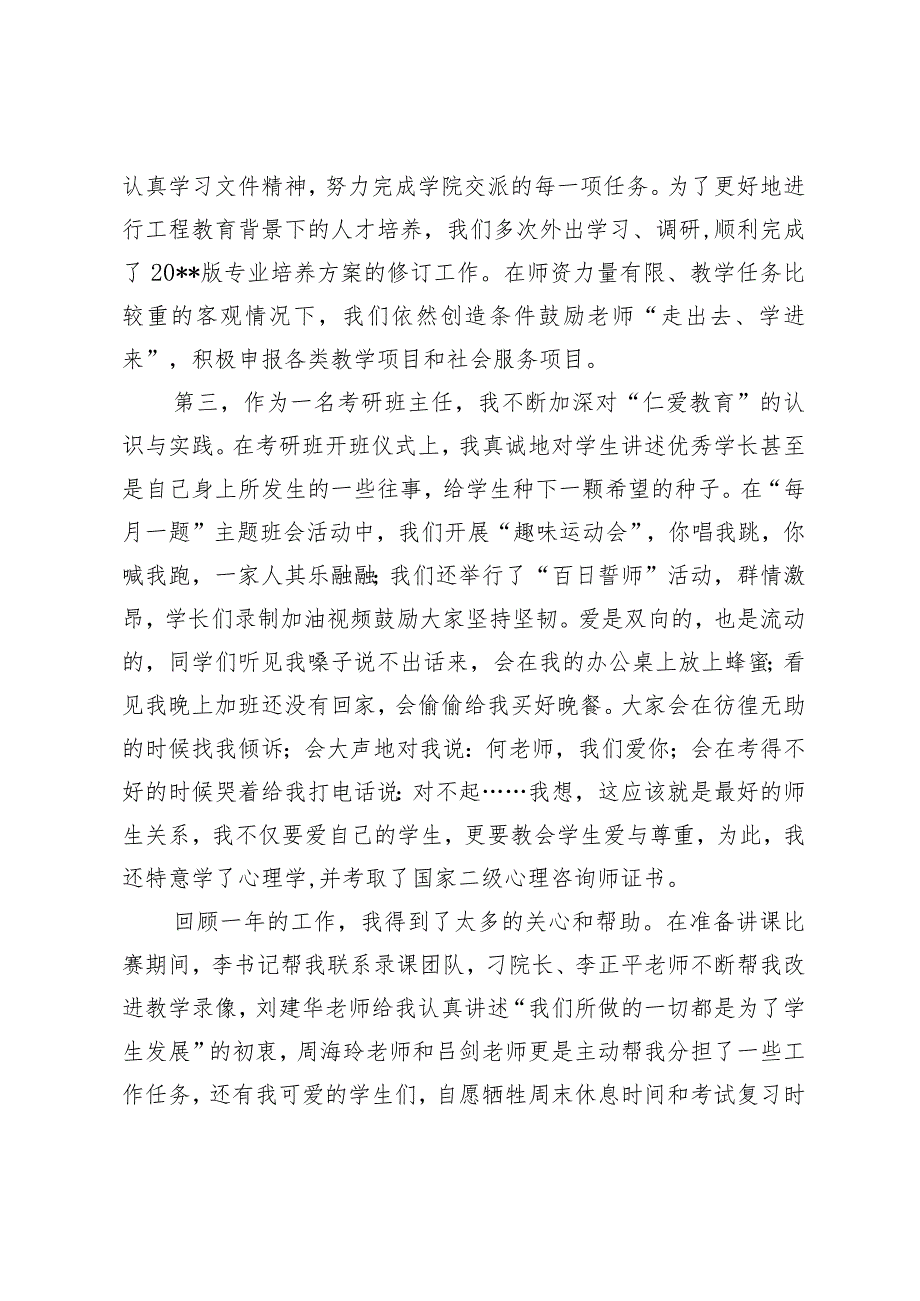 认真学习文件精神，努力完成学院交派的每一项任务。为了更好地进
行工程教育背景下的人才培养，我们多次外出学习、调研,顺利完成
了 20**版专业培养方案的修订工作。在师资力量有限、教学任务比
较重的客观情况下，我们依然创造条件鼓励老师“走出去、学进
来”，积极申报各类教学项目和社会服务项目。
第三，作为一名考研班主任，我不断加深对“仁爱教育”的认
识与实践。在考研班开班仪式上，我真诚地对学生讲述优秀学长甚至
是自己身上所发生的一些往事，给学生种下一颗希望的种子。在“每
月一题”主题班会活动中，我们开展“趣味运动会”，你唱我跳，你
喊我跑，一家人其乐融融；我们还举行了“百日誓师”活动，群情激
昂，学长们录制加油视频鼓励大家坚持坚韧。爱是双向的，也是流动
的，同学们听见我嗓子说不出话来，会在我的办公桌上放上蜂蜜；看
见我晚上加班还没有回家，会偷偷给我买好晚餐。大家会在彷徨无助
的时候找我倾诉；会大声地对我说：何老师，我们爱你；会在考得不
好的时候哭着给我打电话说：对不起……我想，这应该就是最好的师
生关系，我不仅要爱自己的学生，更要教会学生爱与尊重，为此，我
还特意学了心理学,并考取了国家二级心理咨询师证书。
回顾一年的工作，我得到了太多的关心和帮助。在准备讲课比
赛期间，李书记帮我联系录课团队，刁院长、李正平老师不断帮我改
进教学录像，刘建华老师给我认真讲述“我们所做的一切都是为了学
生发展”的初衷，周海玲老师和吕剑老师更是主动帮我分担了一些工
作任务，还有我可爱的学生们，自愿牺牲周末休息时间和考试复习时